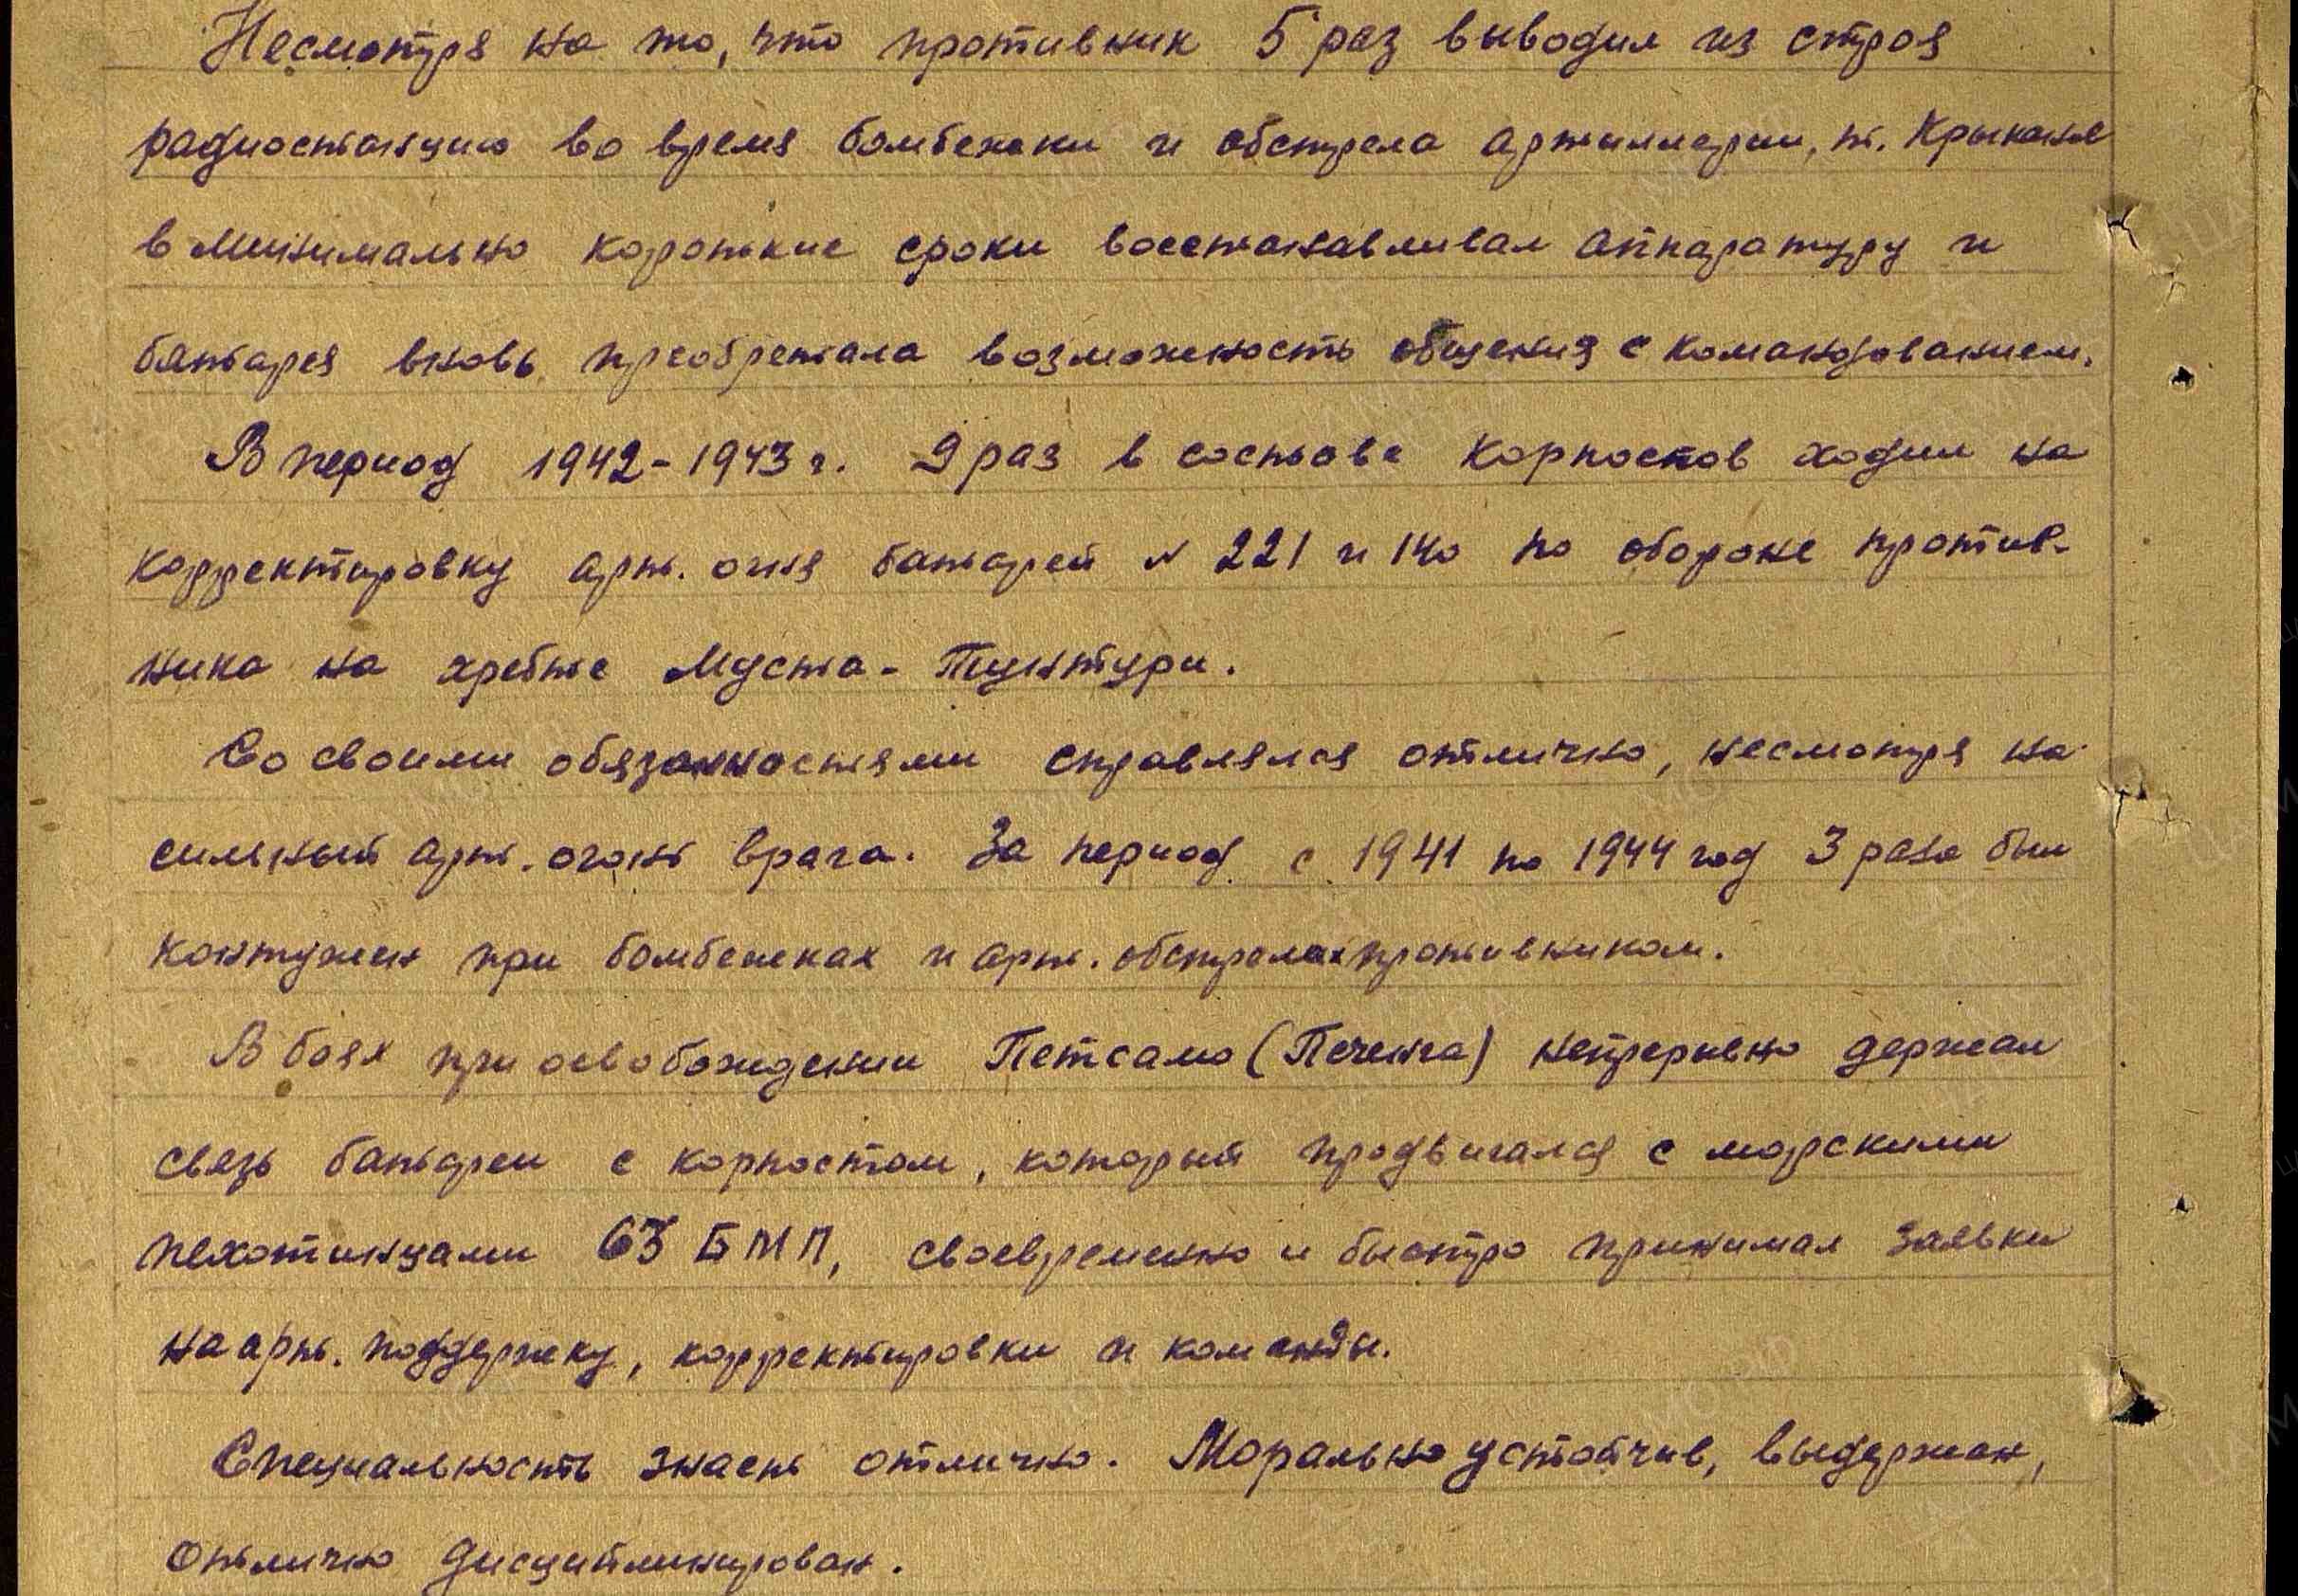 Несмотря на то, что противник 5 раз выводил из строя
радиостанцию во время бомбежки и обстрела артиллерии, т.
в минимально короткие сроки восстанавливал аппаратуру и
батарея вновь преобретала возможность общения с командованием.
В период 1942-1943 г. 9 раз в составе корпостов ходил на
корректировку арт. огня батарей N 221 и 140 по обороне против-
ника на хребте Муста-Тунтури.
Со своими обязанностями справлялся отлично, несмотря на
сильный арт. огонь врага. За период с 1941 по 1944 год 3 раза был
контужен при бомбежках и арт. обстрелах противником.
В боях при освобождении Петсамо (Печенга) непрерывно держал
связь батареи с корпостом, который продвигался с морскими
пехотинцами 63 БМП, своевременно и быстро принимал заявки
на арт. поддержку, корректировки и команды.
Специальность знает отлично. Морально устойчив, выдержан,
отлично дисциплинирован.